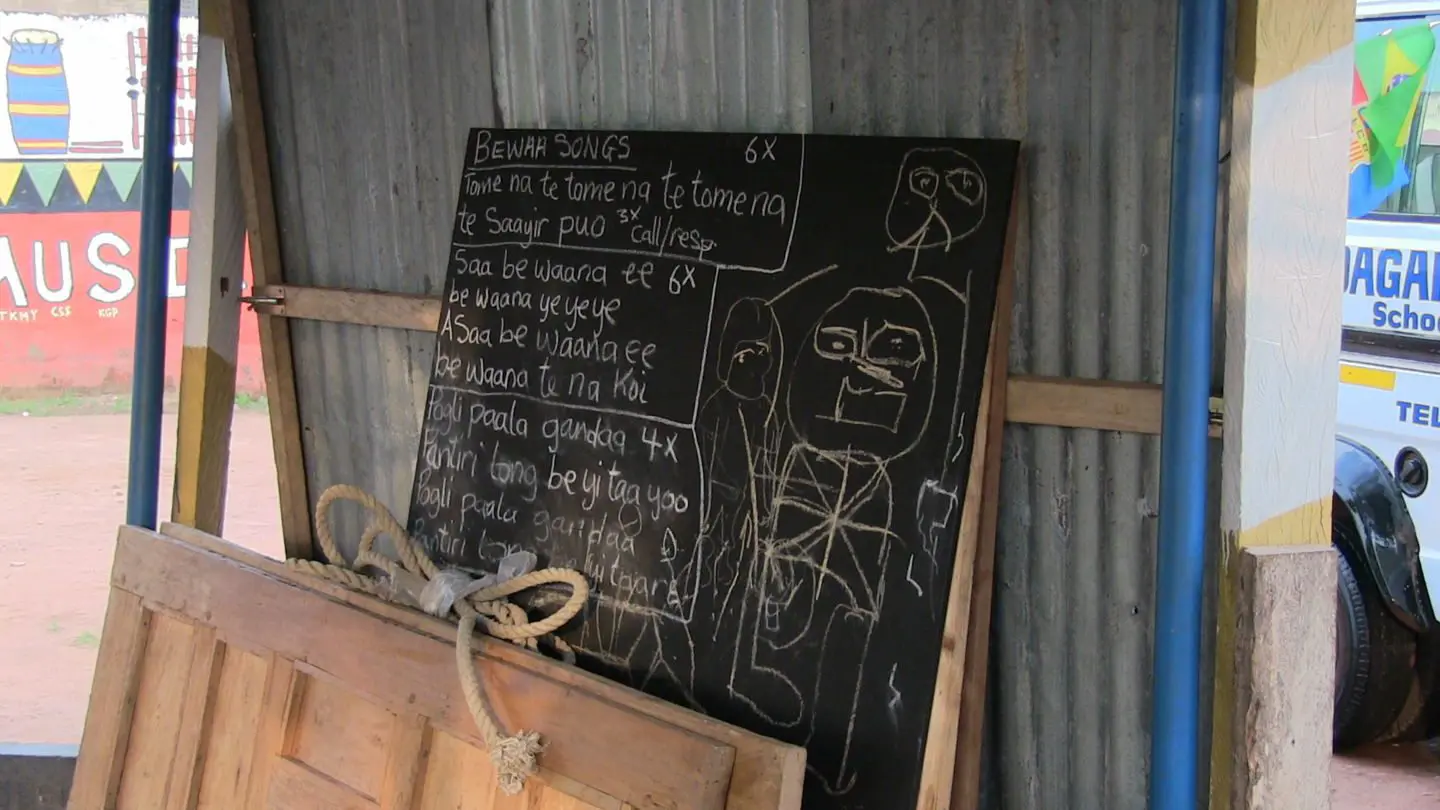 BEWAA SONGS 6X
Tome na te tome na te tome na
te Saayir puo 3X call/resp.
Saa be waana ee 6X
be waana ye ye ye
A Saa be waana ee
be waana te na Koi
Pogli paala gandaa 4X
Pantiri long be yi taa yoo
Pogli paala gandaa
Pantiri
MUS
TKMY CSS KGP
DAGA
Schoo
TEL